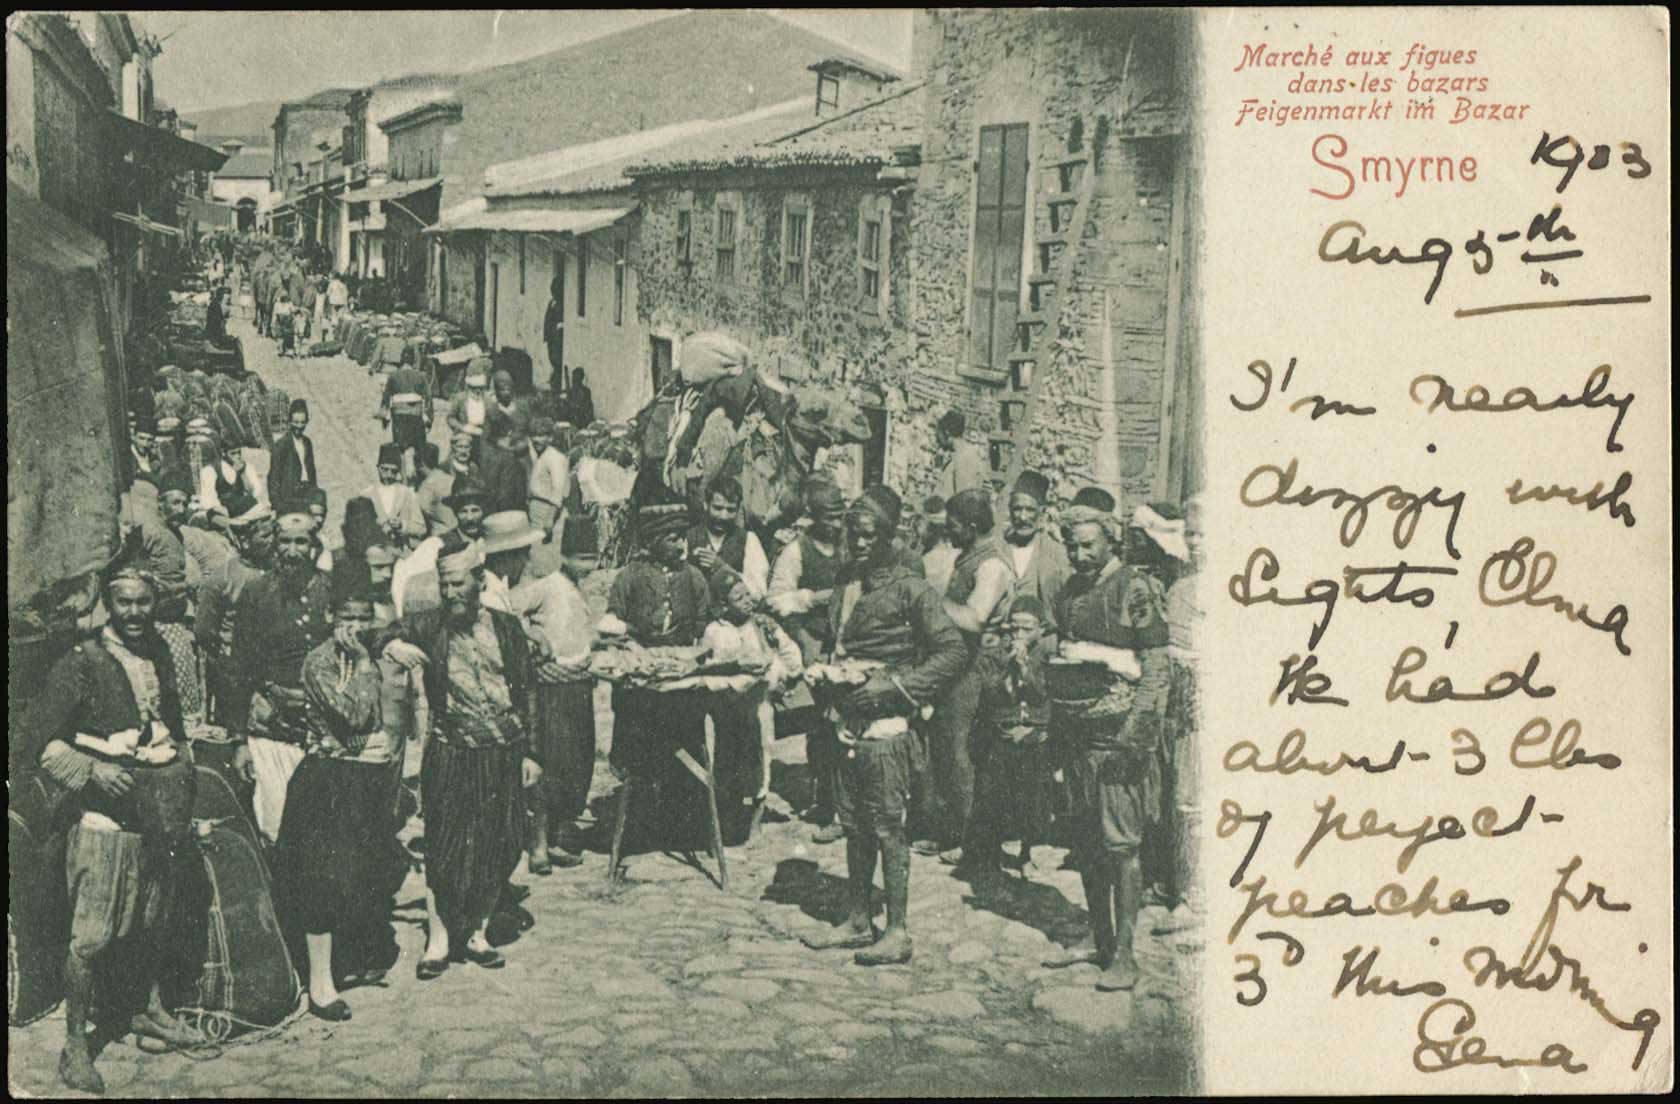 Marché aux figues
dans les bazars
Feigenmarkt im Bazar
Smyrne
1903
Aug 5-th
I'm nearly
dizzy with
Sights, Elma
We had
about 3 lbs
of perfect
peaches for
3D this morning
Gena